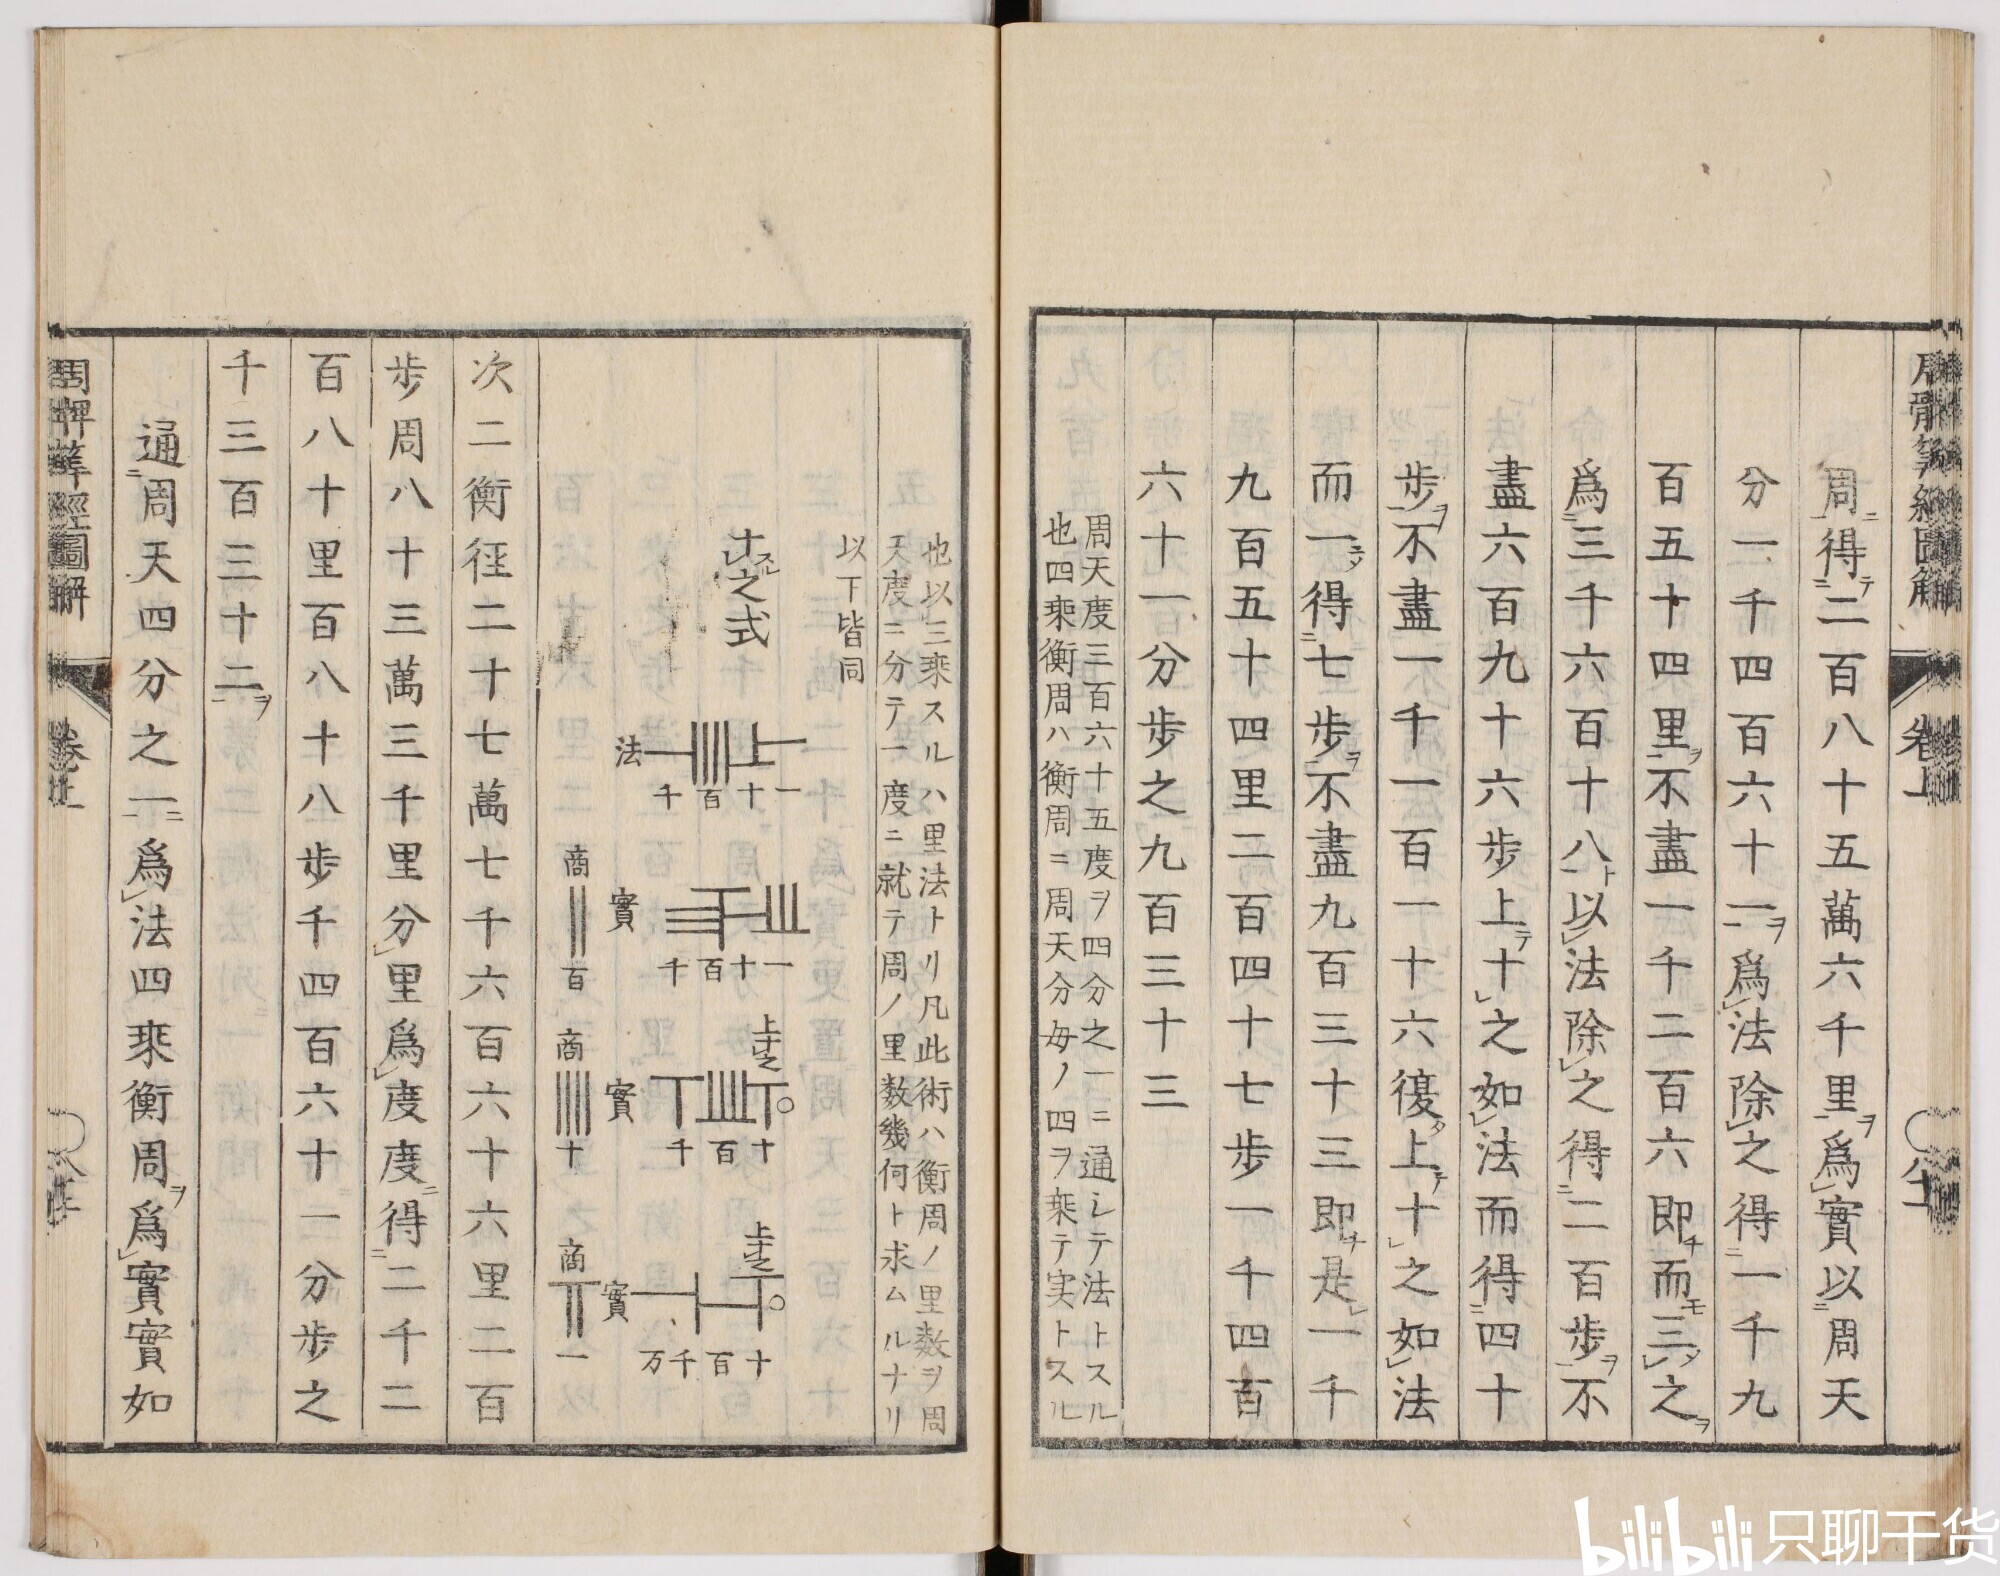 周得二百八十五萬六千里爲實以周天
分一千四百六十一爲法除之得一千九
百五十四里不盡一千二百六即而三之
爲三千六百十八以法除之得二百步不
盡六百九十六步上十之如法而得四十
步不盡一千一百一十六復上十之如法
而一得七步不盡九百三十三即是一千
九百五十四里二百四十七步一千四百
六十一分步之九百三十三
周天度三百六十五度ヲ四分之一ニ通シテ法トスル
也四乘衡周ハ衡周ニ周天分母ノ四ヲ乘テ実トスル
也以三乘スルハ里法トリ凡此術ハ衡周ノ里数ヲ周
天度ニ分テ一度ニ就テ周ノ里数幾何ト求ムルナリ
以下皆同
十之式
法
千百十一
商
百
實
千百十一
商
十
實
上十之
千百十
商
一
實
上十之
万千百十
次二衡徑二十七萬七千六百六十六里二百
步周八十三萬三千里分里爲度度得二千二
百八十里百八十八步千四百六十一分步之
千三百三十二
通周天四分之一爲法四乘衡周爲實實如
周髀算經圖解
卷上
bilibili 只聊干货